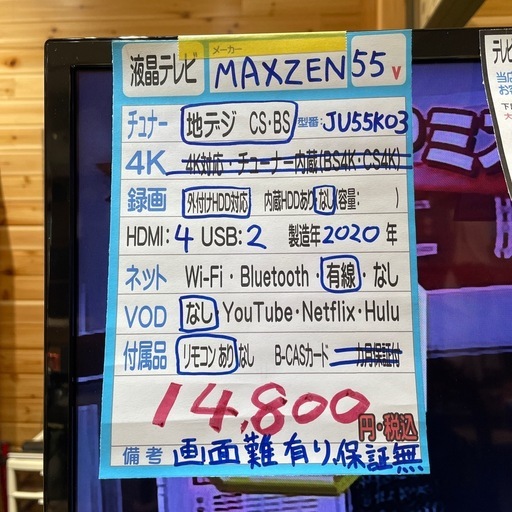 液晶テレビ メーカー MAXZEN 55V
チュナー 地デジ CS・BS 型番: JU55K03
4K 4K対応・チューナー内蔵(BS4K・CS4K)
録画 外付けHDD対応 内蔵HDDあり・なし(容量: )
HDMI: 4 USB: 2 製造年 2020 年
ネット Wi-Fi・Bluetooth・有線・なし
VOD なし YouTube・Netflix・Hulu
付属品 リモコンあり なし B-CASカード カ月保証付
14,800 円・税込
備考 画面難有り、保証無
テレビ
当店
お客